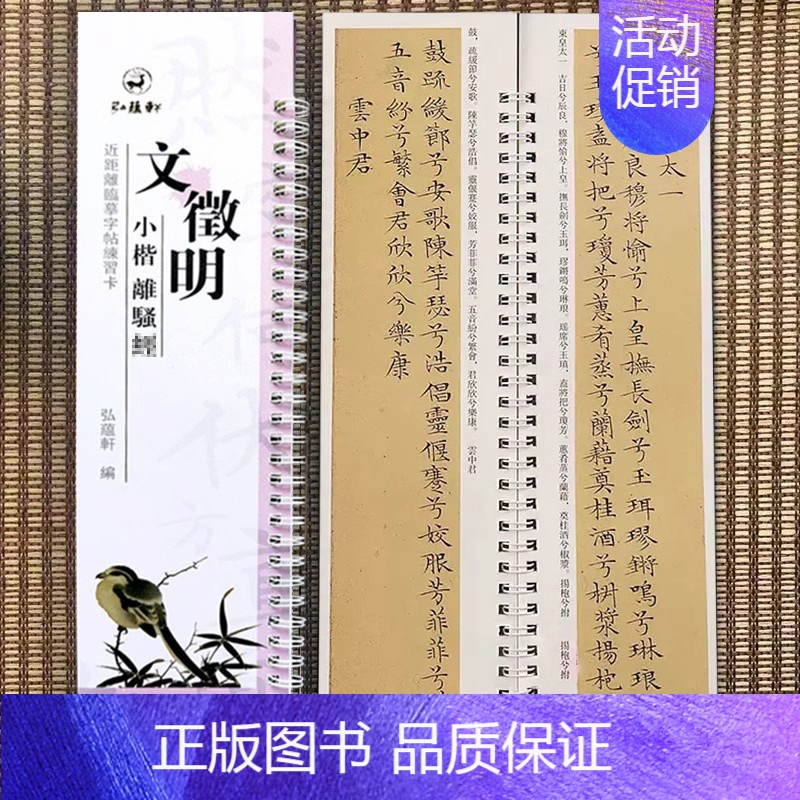 活动
促销
弘蕴軒
近距離臨摹字帖練習卡
文徵明
小楷離騷
弘蘊軒 編
太一
良穆将愉兮上皇撫長劍兮玉珥璆鏘鳴兮琳琅
兮玉瑱盍将把兮瓊芳蕙肴蒸兮蘭藉奠桂酒兮椒漿揚枹
東皇太一 吉日兮辰良，穆將愉兮上皇。撫長劍兮玉珥，璆鏘鳴兮琳琅。瑶席兮玉瑱，盍將把兮瓊芳。蕙肴蒸兮蘭藉，奠桂酒兮椒漿。揚枹兮拊
揚枹兮拊
鼓，疏緩節兮安歌，陳竽瑟兮浩倡。靈偃蹇兮姣服，芳菲菲兮滿堂。五音紛兮繁會，君欣欣兮樂康。 雲中君
鼓疏緩節兮安歌陳竽瑟兮浩倡靈偃蹇兮姣服芳菲菲兮
五音紛兮繁會君欣欣兮樂康
雲中君
正版图书 品质保证